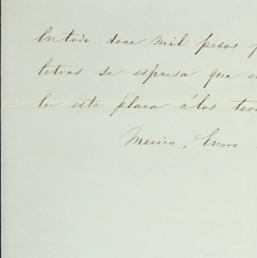 En todo doce mil pesos p
letras se espresa que
En esta plaza á los
Mexico, Enero